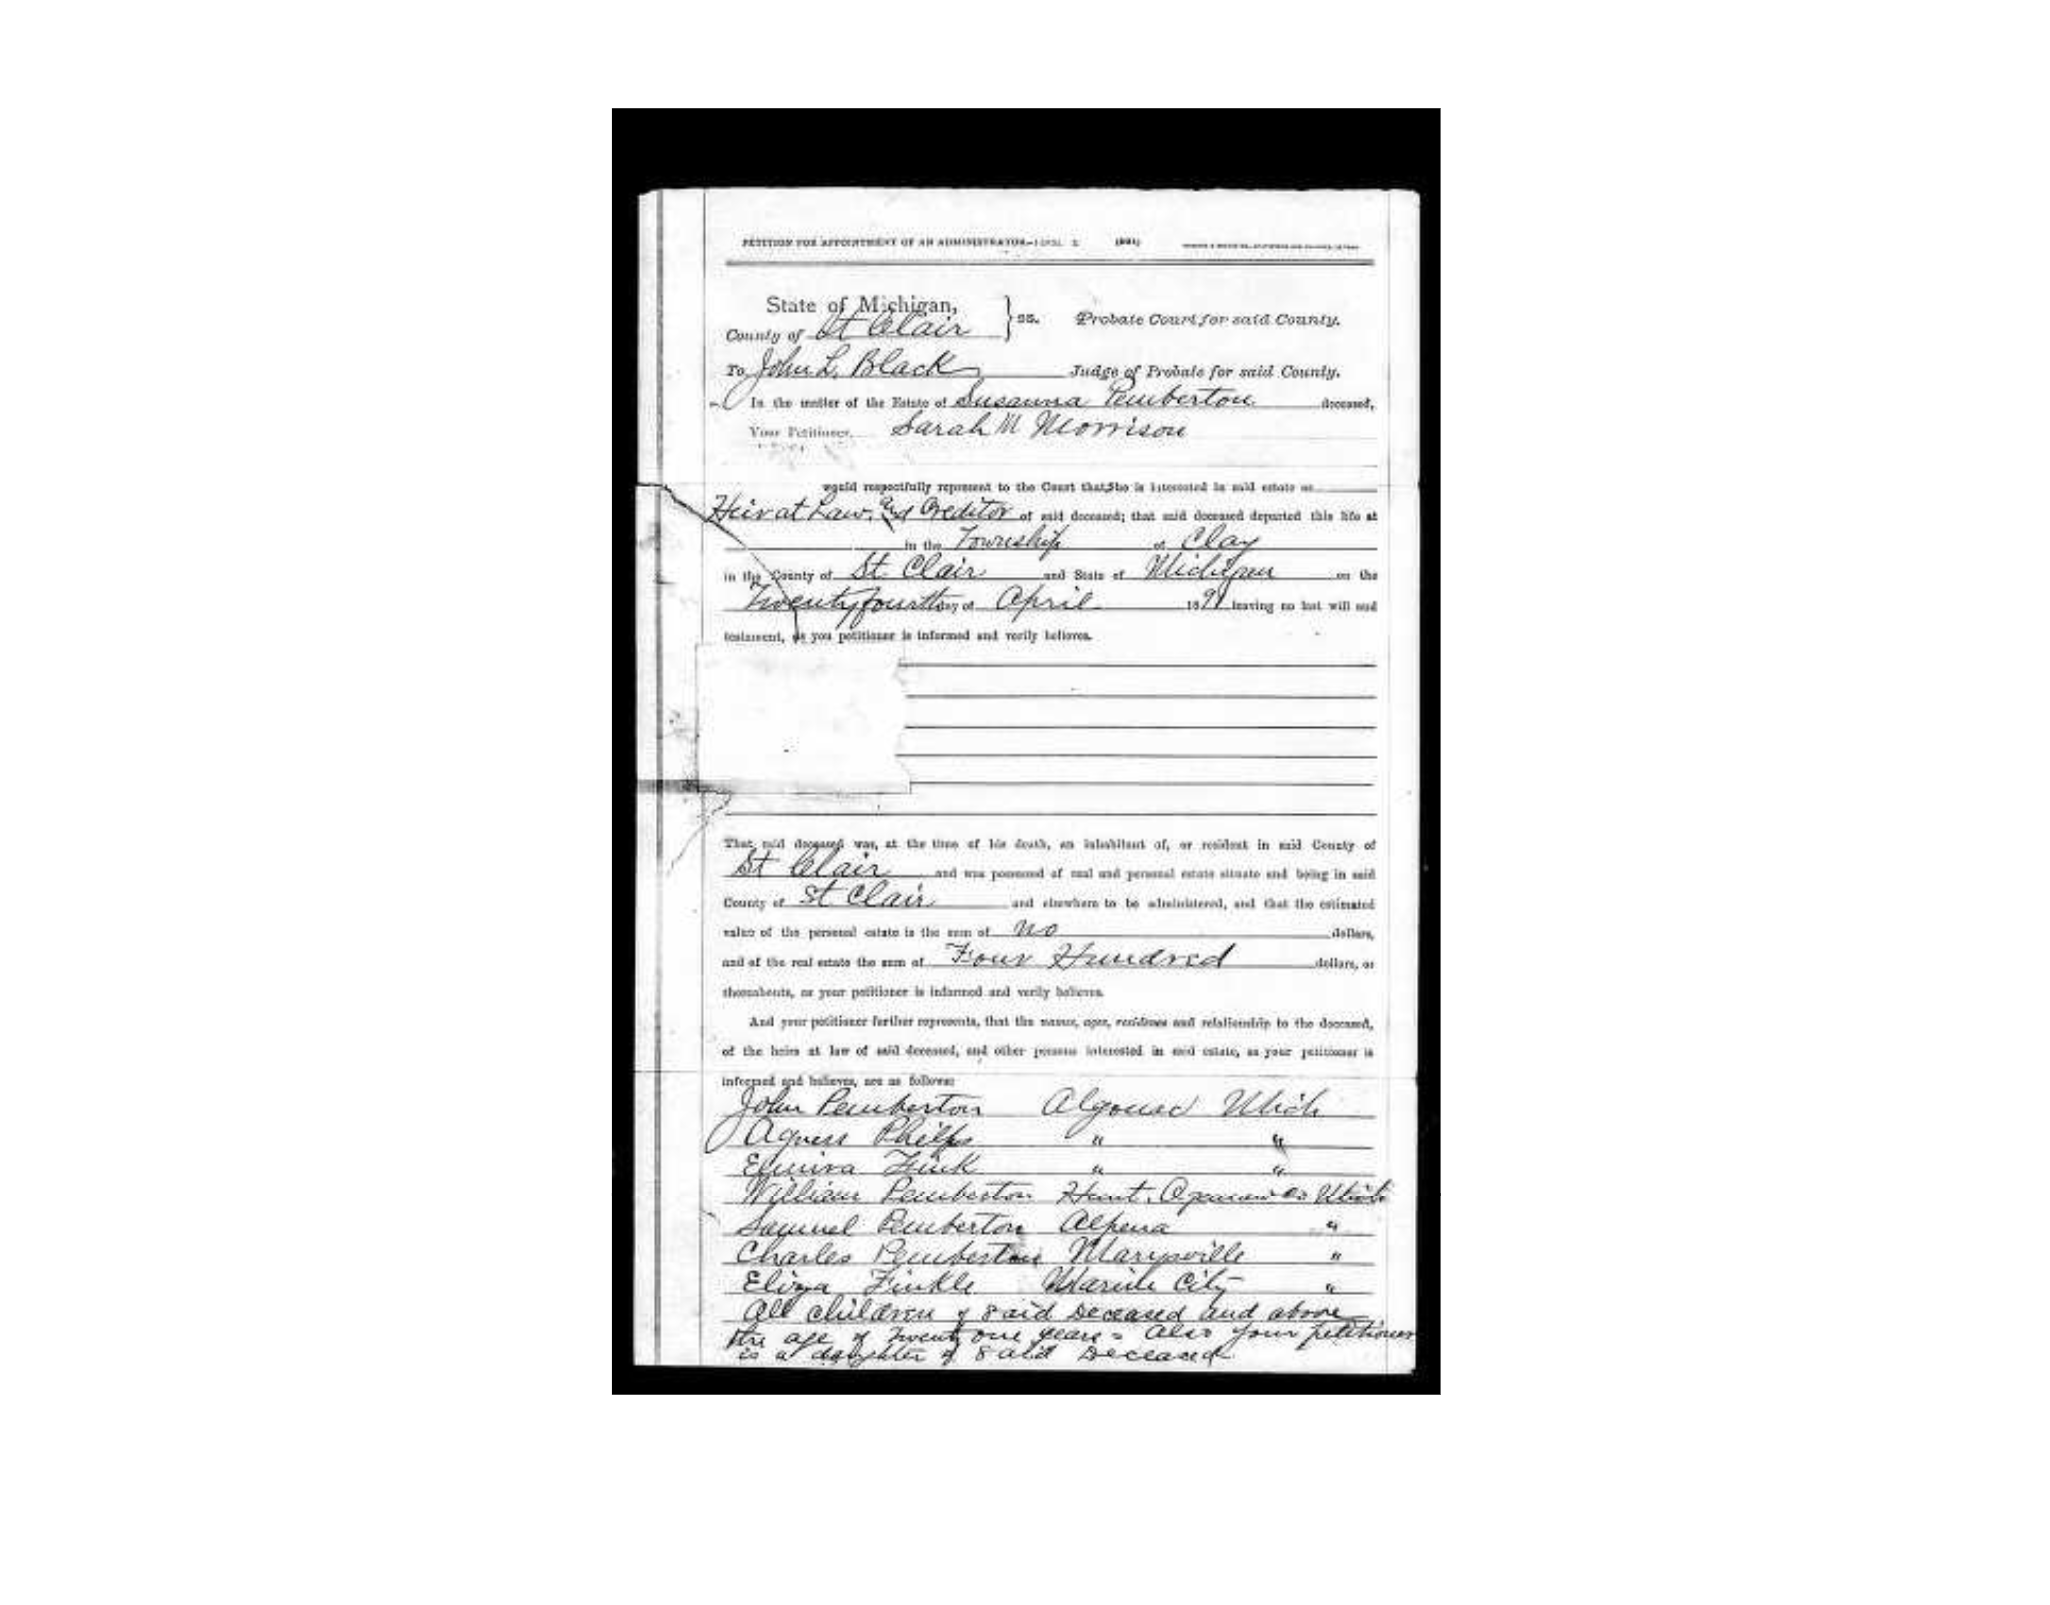 PETITION FOR APPOINTMENT OF AN ADMINISTRATOR
State of Michigan,
County of St Clair } ss. Probate Court for said County.
To John L. Black Judge of Probate for said County.
In the matter of the Estate of Susanna Pemberton deceased,
Your Petitioner, Sarah M Morrison
would respectfully represent to the Court that She is interested in said estate as
Heir at Law, and Creditor of said deceased; that said deceased departed this life at
in the Township of Clay
in the County of St. Clair and State of Michigan on the
Twenty fourth day of April 1891 leaving no last will and
testament, as you petitioner is informed and verily believes.
That said deceased was, at the time of his death, an inhabitant of, or resident in said County of
St Clair and was possessed of real and personal estate situate and being in said
County of St Clair and elsewhere to be administered, and that the estimated
value of the personal estate is the sum of no dollars,
and of the real estate the sum of Four Hundred dollars, or
thereabouts, as your petitioner is informed and verily believes.
And your petitioner further represents, that the names, ages, residence and relationship to the deceased,
of the heirs at law of said deceased, and other persons interested in said estate, as your petitioner is
informed and believes, are as follows:
John Pemberton Algonac Mich
Agness Phelps " "
Elmira Fink " "
William Pemberton Mich
Samuel Pemberton Alpena "
Charles Pemberton Marysville "
Eliza Finkle Marine City "
All children of said Deceased and above
the age of Twenty one years = Also your petitioner
is a daughter of said Deceased